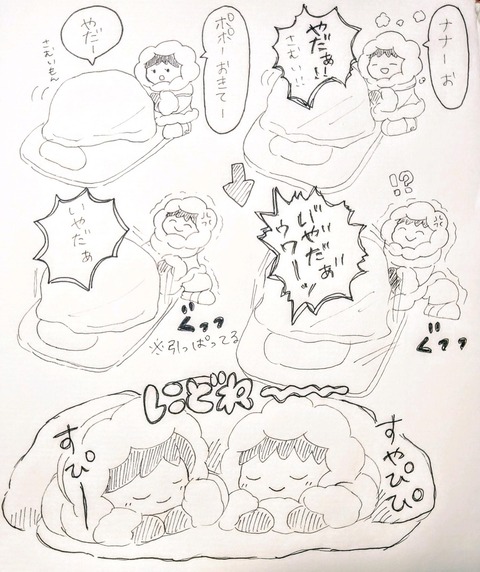 ナナーお
やだぁ!!
さむい!!
ポポーおきてー
やだー
さむいもん
!?
いやだぁ
ウワーッ
ぐッッ
いやだぁ
ぐッッ
※引っぱってる
にどね〜〜
すやぴぴ
すぴー